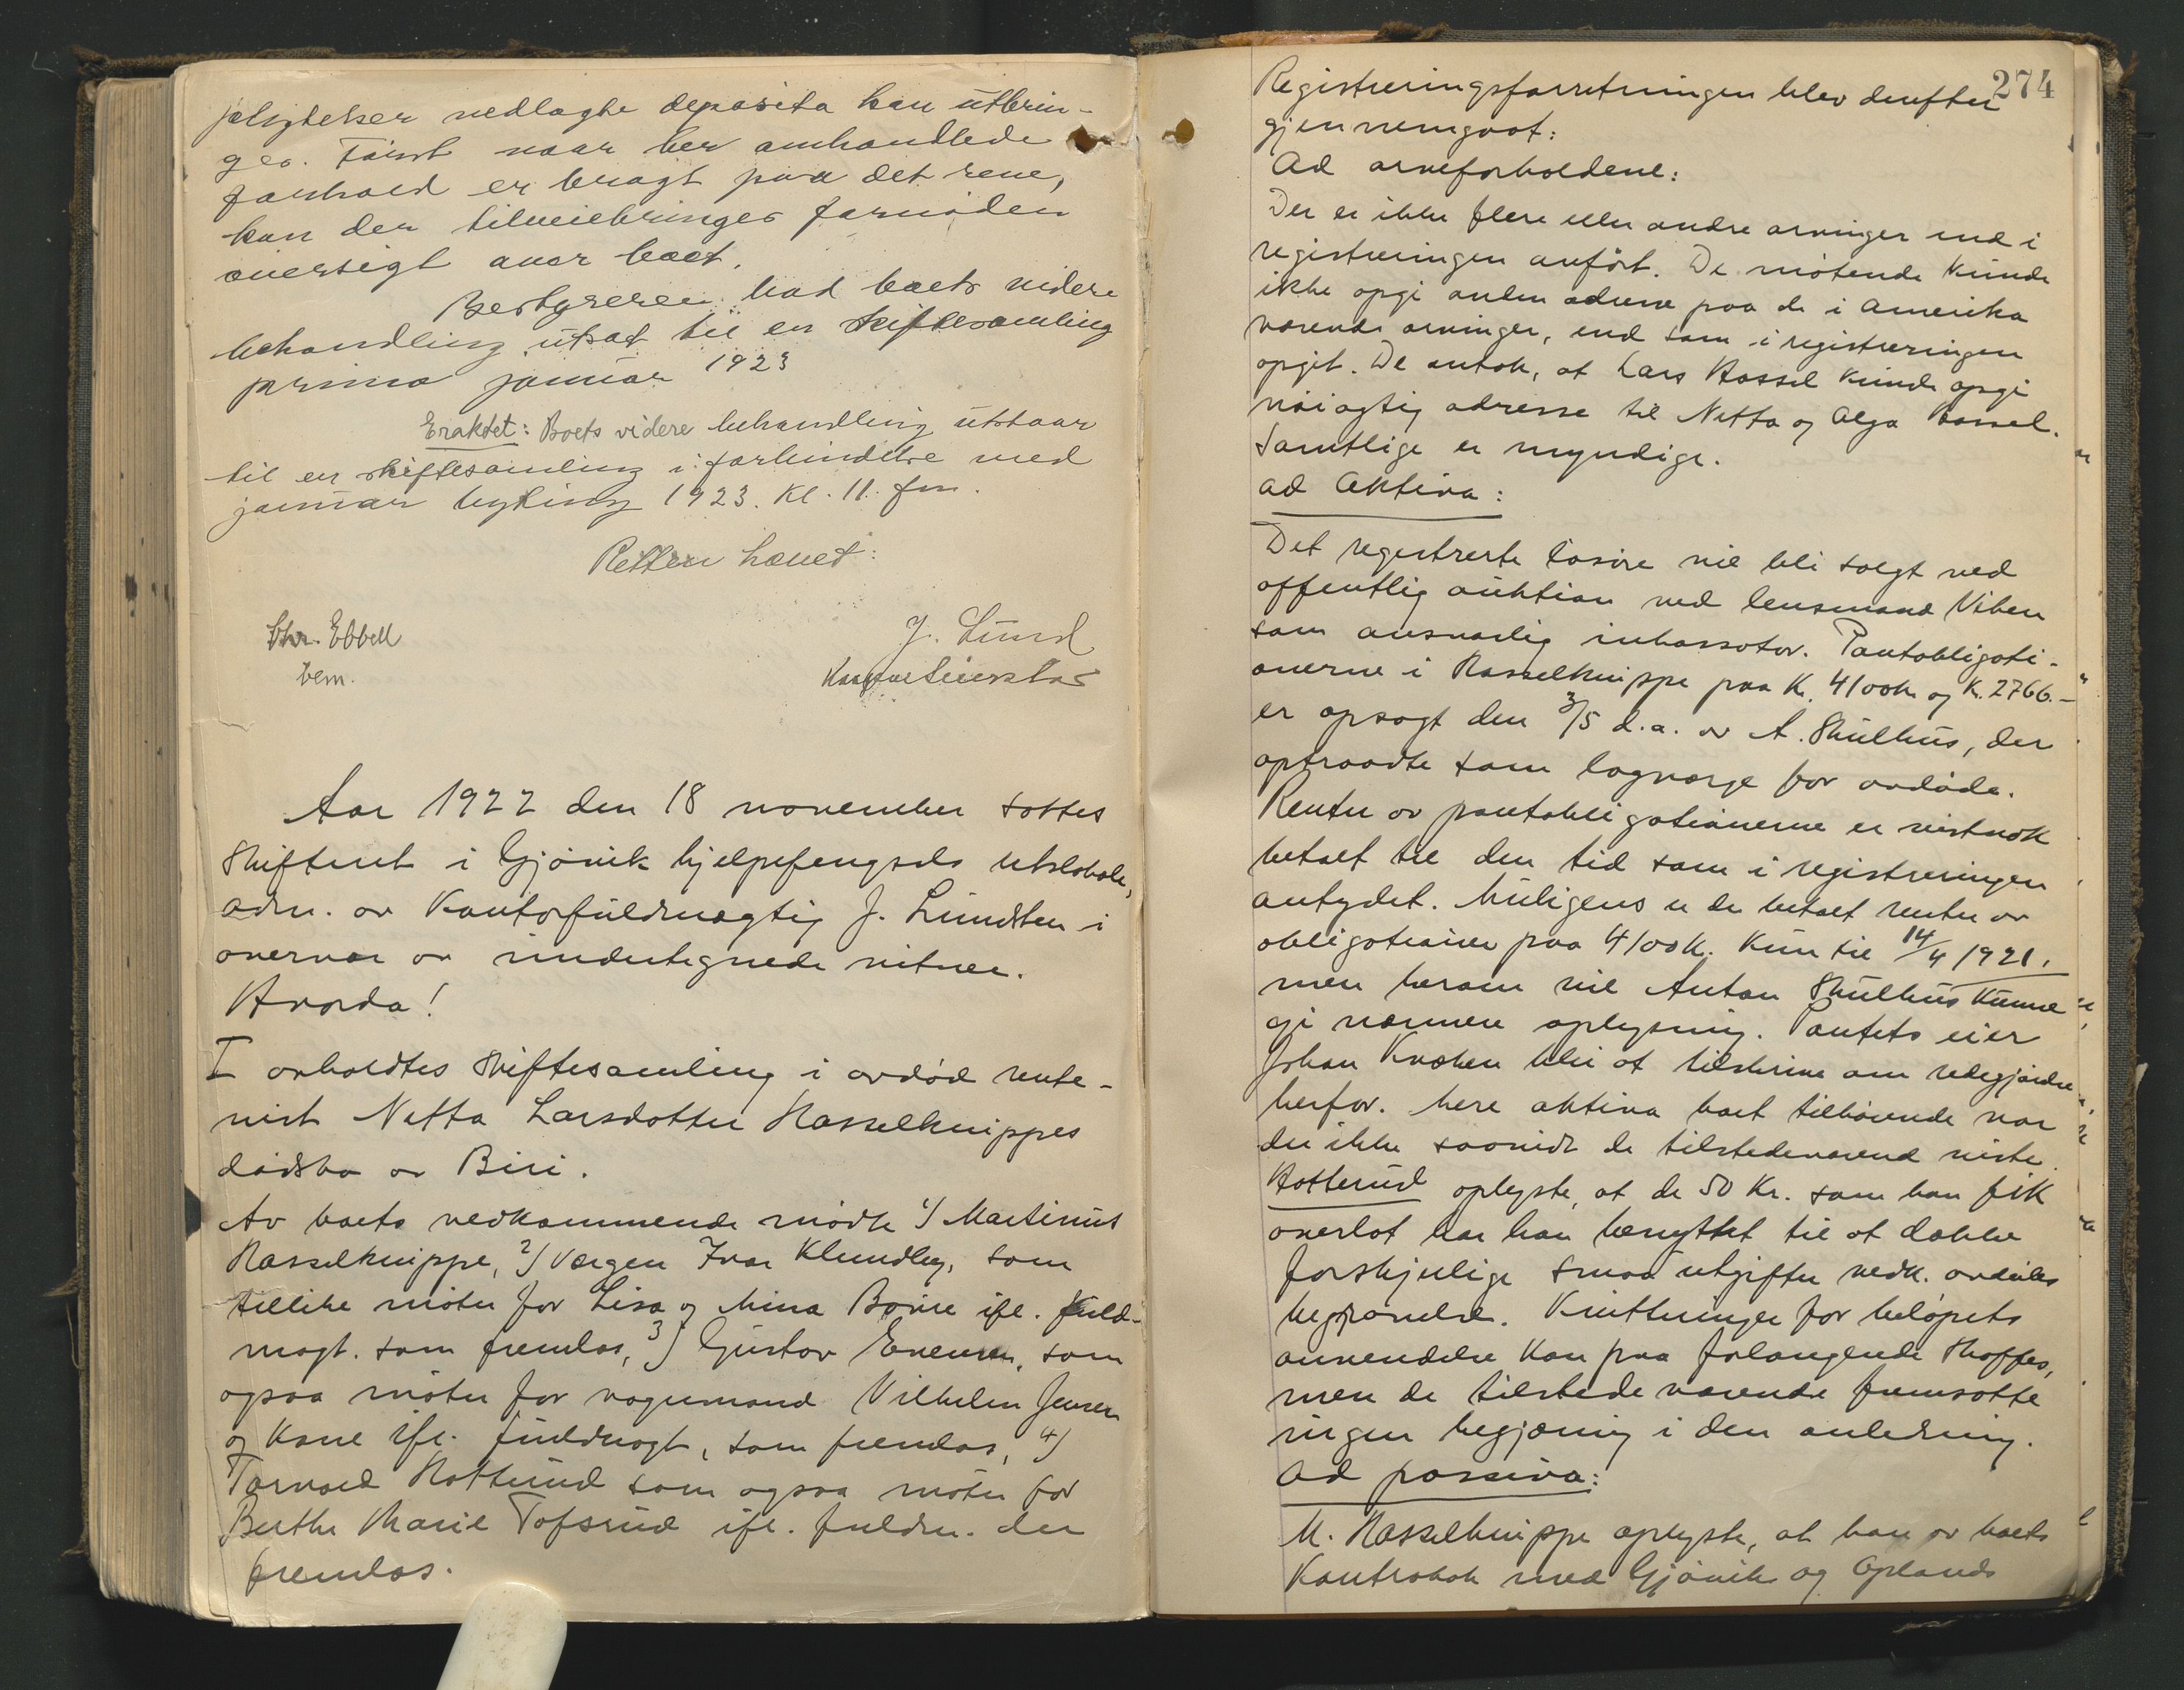 pligtelser nedlagte deposita kan utbrin-
ges. Først naar her omhandlede
forhold er bragt paa det rene,
kan der tilveiebringes fornøden
oversigt over boet.
Bestyreren bad boets videre
behandling utsat til en skiftesamling
primo januar 1923
Eraktet: Boets videre behandling utstaar
til en skiftesamling i forbindelse med
januar bytting 1923. Kl. 11. fm.
Retten hævet:
Chr. Ebbell
bem.
J. Lund
Aar 1922 den 18 november sattes
Skifteret i Gjøvik hjelpefengsels retslokale,
adm. av Kontorfuldmægtig J. Lundsten i
overvær av undertegnede vitner.
Hvorda!
I avholdtes Skiftesamling i avdød rente-
nist Netta Larsdotter Hasselknippes
dødsbo av Biri.
Av boets vedkommende mødte 1) Martinus
Hasselknippe, 2) Værgen Ivar Klundby, som
tillike møter for Lisa og Mina Bovre ifl. fuld-
magt. som fremlas, 3) Gustav Evensen, som
ogsaa møter for vognmand Vilhelm Jensen
og Kone ifl. fuldmagt, som fremlas, 4)
Torvald Hotterud som ogsaa møter for
Berthe Marie Tofsrud ifl. fuldm. der
fremlas.
274
Registreringsforretningen blev derefter
gjennemgaat:
Ad arveforholdene:
Der er ikke flere eller andre arvinger end i
registreringen anført. De møtende kunde
ikke opgi anden adresse paa de i Amerika
værende arvinger, end som i registreringen
opgit. De antok, at Lars Hassel kunde opgi
nøiagtig adresse til Netta og Olga Hassel.
Samtlige er myndige.
ad Aktiva:
Det registrerte løsøre vil bli solgt ved
offentlig auktion ved lensmand Viken
som ansvarlig inkassator. Pantobligati-
onerne i Hasselknippe paa Kr. 4100kr og Kr. 2766.-
er opsagt den 3/5 d.a. av A. Skulhus, der
optraadte som lagværge for avdøde.
Renter av pantobligationerne er vistnok
betalt til den tid som i registreringen
antydet. Muligens er der betalt renter av
obligationen paa 4100k. kun til 14/4 1921,
men herom vil Anton Skulhus kunne
gi nærmere oplysning. Pantets eier
Johan Kvæken blir at tilskrive om redegjørelse
herfor. Mere aktiva boet tilhørende var
der ikke saavidt de tilstedeværend viste.
Hotterud oplyste, at de 50 Kr. som han fik
overlot har han benyttet til at dække
forskjelige smaa utgifter vedk. avdødes
begravelse. Kvitteringer for beløpets
anvendelse kan paa forlangende skaffes,
men de tilstedeværende fremsatte
ingen begjæring i den anledning.
Ad passiva:
M. Hasselknippe oplyste, at han av boets
Kontrabok med Gjøvik og Oplands